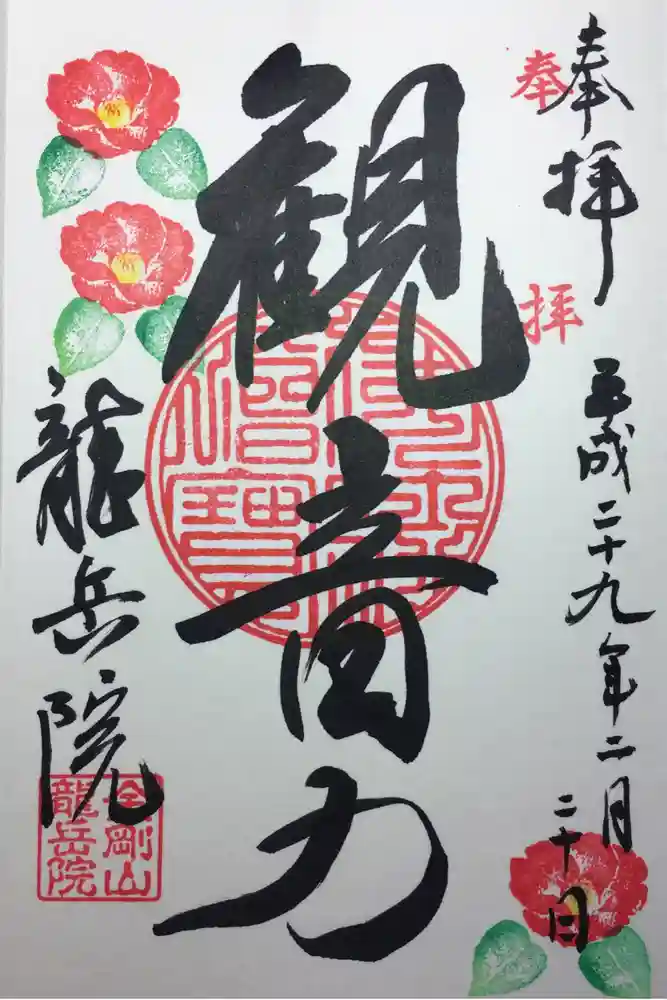 奉拝
奉
拝
平成二十九年二月
二十日
観音力
佛法僧寳
龍岳院
金剛山
龍岳院